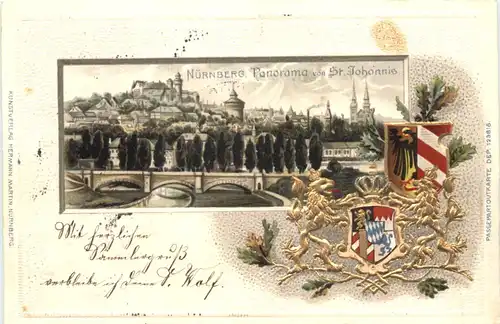 NÜRNBERG, Panorama von St. Johannis.
KUNSTVERLAG HERMANN MARTIN NÜRNBERG.
PASSEPARTOUTKARTE, DEP. 1938/8.
Mit herzlichen
Sammlergruß
verbleibe ich deine S. Wolf.